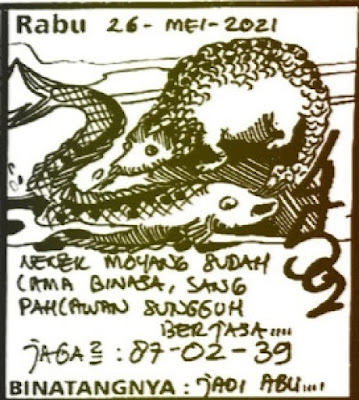 Rabu 26 - MEI - 2021
NENEK MOYANG SUDAH
LAMA BINASA, SANG
PAHLAWAN SUNGGUH
BERJASA....
JAGA2 : 87-02-39
BINATANGNYA : JADI ABU....